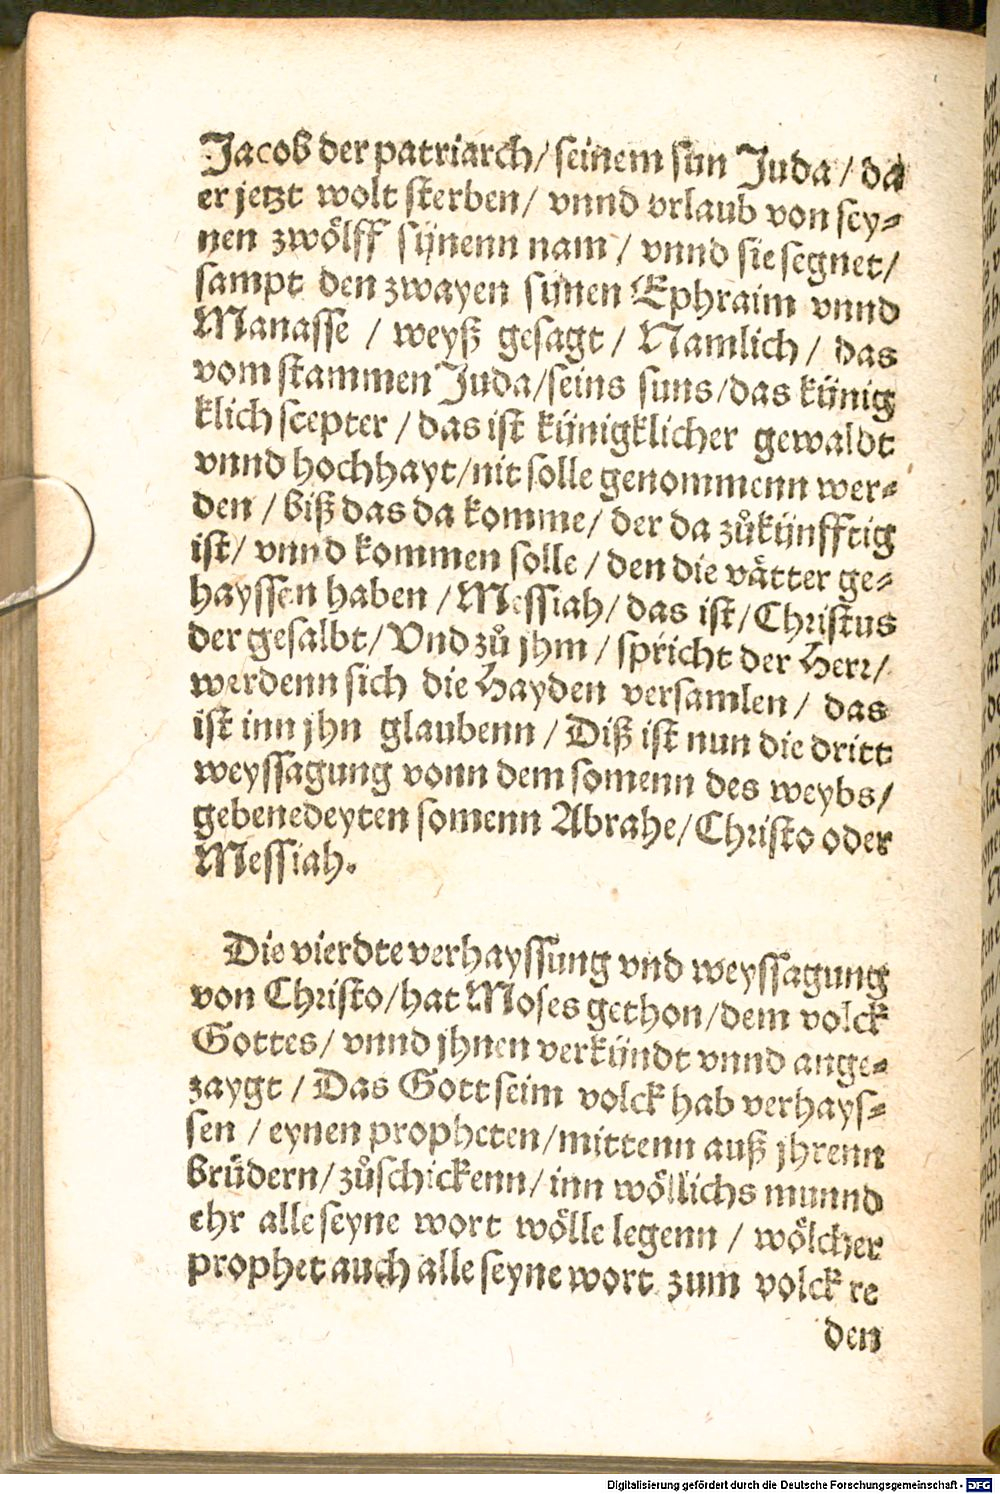 Jacob der patriarch/ seinem sun Juda / da
er jetzt wolt sterben/ vnnd vrlaub von sey-
nen zwölff sünenn nam / vnnd sie segnet/
sampt den zwayen sünen Ephraim vnnd
Manasse / weyß gesagt / Namlich / das
vom stammen Juda/seins suns/das künig
klich scepter / das ist künigklicher gewaldt
vnnd hochhayt/nit solle genommenn wer-
den / biß das da komme/ der da zůkünfftig
ist/ vnnd kommen solle / den die vätter ge-
hayssen haben / Messiah/ das ist/ Christus
der gesalbt/ Vnd zů jhm / spricht der Herr/
werdenn sich die Hayden versamlen / das
ist inn jhn glaubenn / Diß ist nun die dritt
weyssagung vonn dem somenn des weybs/
gebenedeyten somenn Abrahe/ Christo oder
Messiah.
Die vierdte verhayssung vnd weyssagung
von Christo/hat Moses gethon/dem volck
Gottes/ vnnd jhnen verkündt vnnd ange-
zaygt / Das Gott seim volck hab verhays-
sen / eynen propheten/mittenn auß jhrenn
brüdern/ zůschickenn/ inn wöllichs munnd
ehr alle seyne wort wölle legenn / wölcher
prophet auch alle seyne wort zum volck re
den
Digitalisierung gefördert durch die Deutsche Forschungsgemeinschaft - DFG